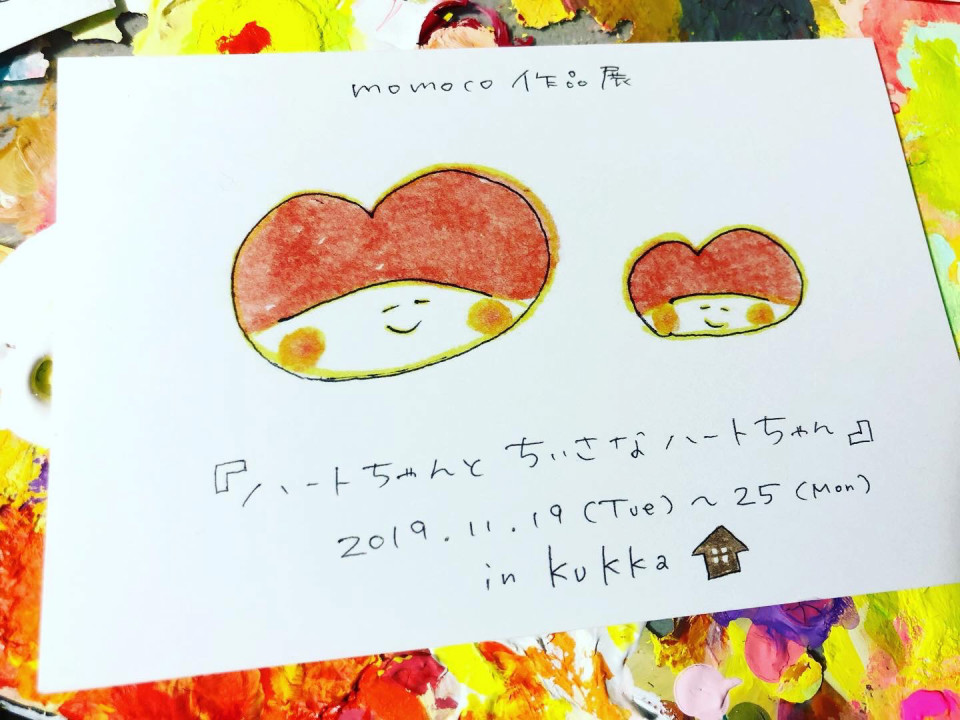 momoco 作品展
『ハートちゃんと ちいさな ハートちゃん』
2019.11.19 (Tue) ～ 25 (Mon)
in kukka